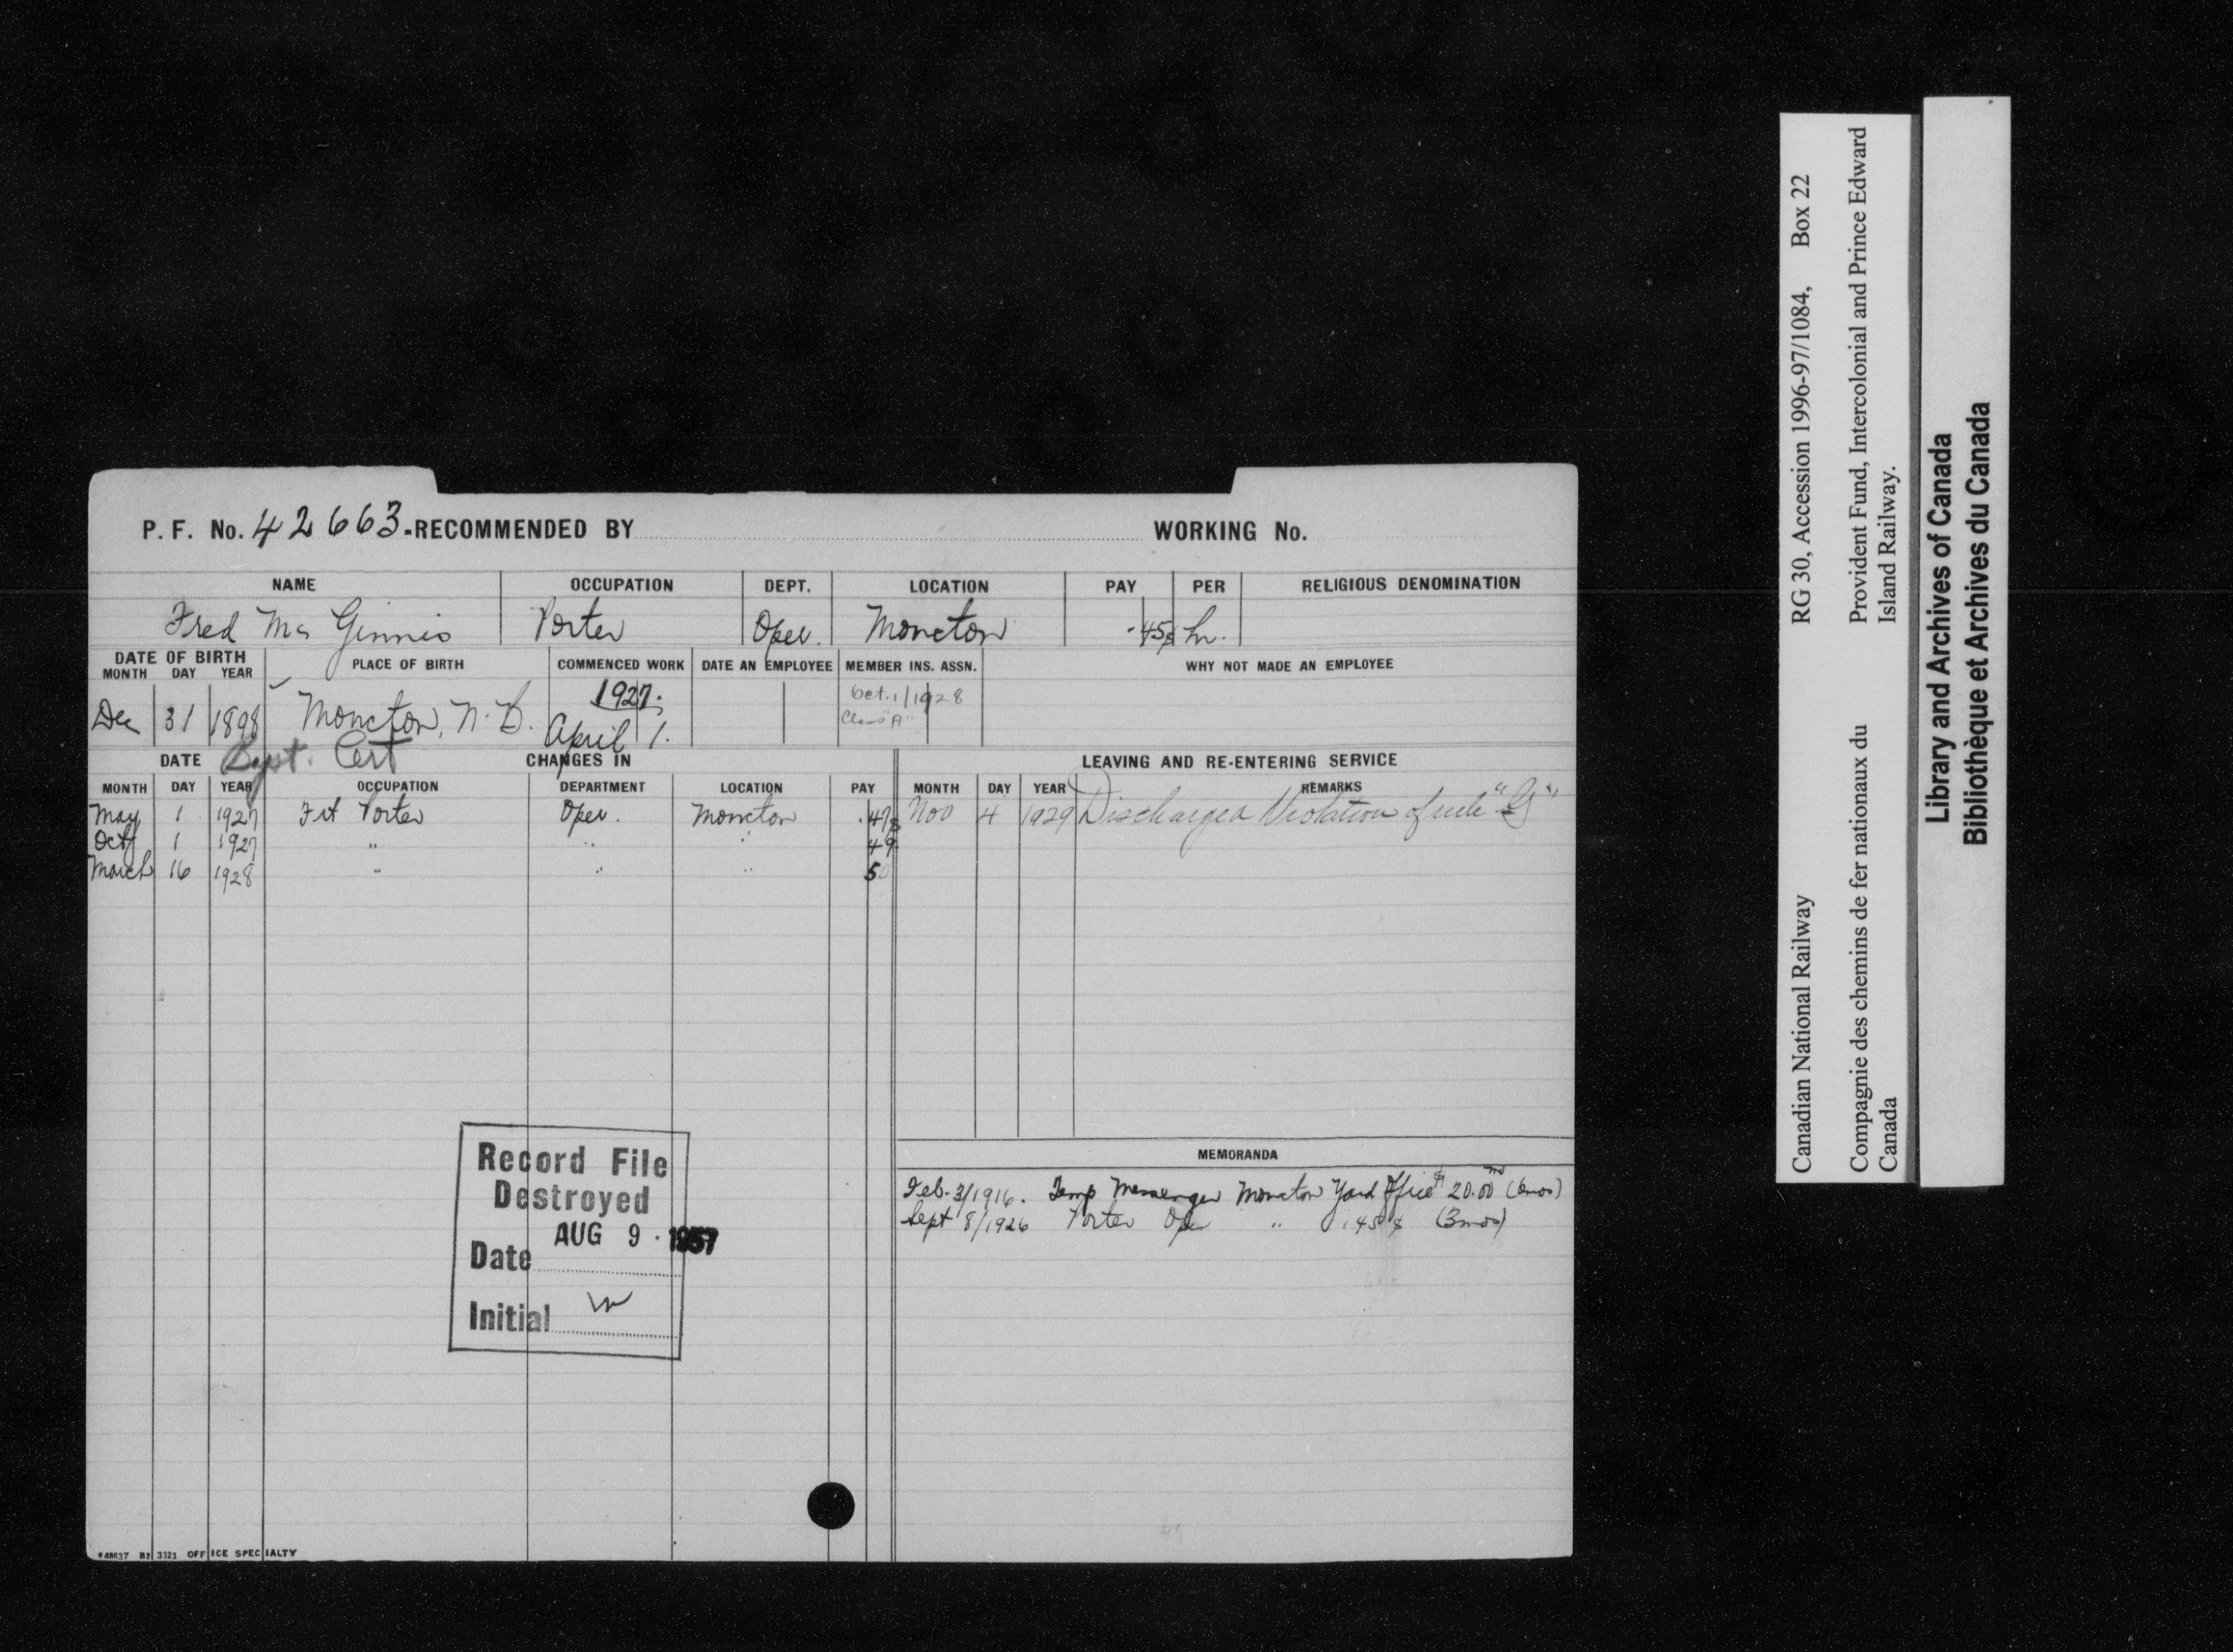 P. F. No. 42663-RECOMMENDED BY WORKING No.
NAME OCCUPATION DEPT. LOCATION PAY PER RELIGIOUS DENOMINATION
Fred Mc Ginnis Porter Oper. Moncton .45¢ hr.
DATE OF BIRTH PLACE OF BIRTH COMMENCED WORK DATE AN EMPLOYEE MEMBER INS. ASSN. WHY NOT MADE AN EMPLOYEE
MONTH DAY YEAR
Dec 31 1898 Moncton, N.B. 1927. April 1. Oct. 1/1928
Class "A"
Bapt. Cert
DATE CHANGES IN LEAVING AND RE-ENTERING SERVICE
MONTH DAY YEAR OCCUPATION DEPARTMENT LOCATION PAY MONTH DAY YEAR REMARKS
May 1 1927 Frt Porter Oper. Moncton .47¢ Nov 4 1929 Discharged Violation of rule "G"
Oct 1 1927 " " " 49
March 16 1928 " " " 50
Record File
Destroyed
AUG 9 1957
Date
Initial W
MEMORANDA
Feb. 3/1916. Temp Messenger Moncton Yard Office $20.00 mo (6mos)
Sept 8/1926 Porter Oper " .45¢ (3mos)
48637 B1 3323 OFFICE SPECIALTY
Canadian National Railway RG 30, Accession 1996-97/1084, Box 22
Compagnie des chemins de fer nationaux du Provident Fund, Intercolonial and Prince Edward
Canada Island Railway.
Library and Archives of Canada
Bibliothèque et Archives du Canada